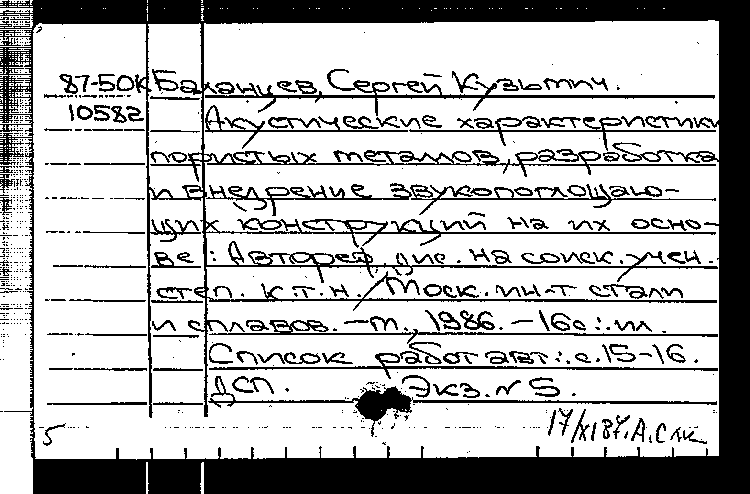 87-50К Баланцев, Сергей Кузьмич.
10582 Акустические характеристики
пористых металлов, разработка
и внедрение звукопоглощаю-
щих конструкций на их осно-
ве : Автореф. дис. на соиск. учен.
степ. к.т.н. / Моск. ин-т стали
и сплавов. – М., 1986. – 16с.: ил.
Список работ авт.: с. 15-16.
ДСП. Экз. № 5.
5 17/XI 87. А.